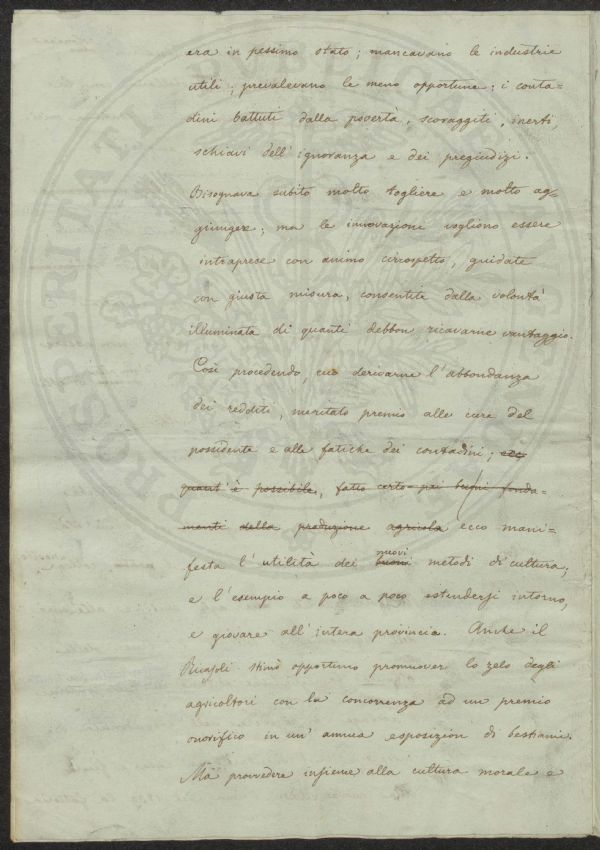 era in pessimo stato; mancavano le industrie
utili; prevalevano le meno opportune; i conta-
dini battuti dalla povertà, scoraggiti, inerti,
schiavi dell'ignoranza e dei pregiudizi.
Bisognava subito molto togliere e molto ag-
giungere; ma le innovazioni vogliono essere
intraprese con animo circospetto, guidate
con giusta misura, consentite dalla volontà
illuminata di quanti debbon ricavarne vantaggio.
Così procedendo, derivarne l'abbondanza
dei redditi, meritato premio alle cure del
possidente e alle fatiche dei contadini; ecc
quant'è possibile, fatto certo poi buoni fonda-
menti della produzione agricola ecco mani-
festa l'utilità dei buoni nuovi metodi di cultura;
e l'esempio a poco a poco estendersi intorno,
e giovare all'intera provincia. Anche il
Ricasoli stimò opportuno promuover lo zelo degli
agricoltori con la concorrenza ad un premio
onorifico in un'annua esposizion di bestiami.
Ma provvedere insieme alla cultura morale e